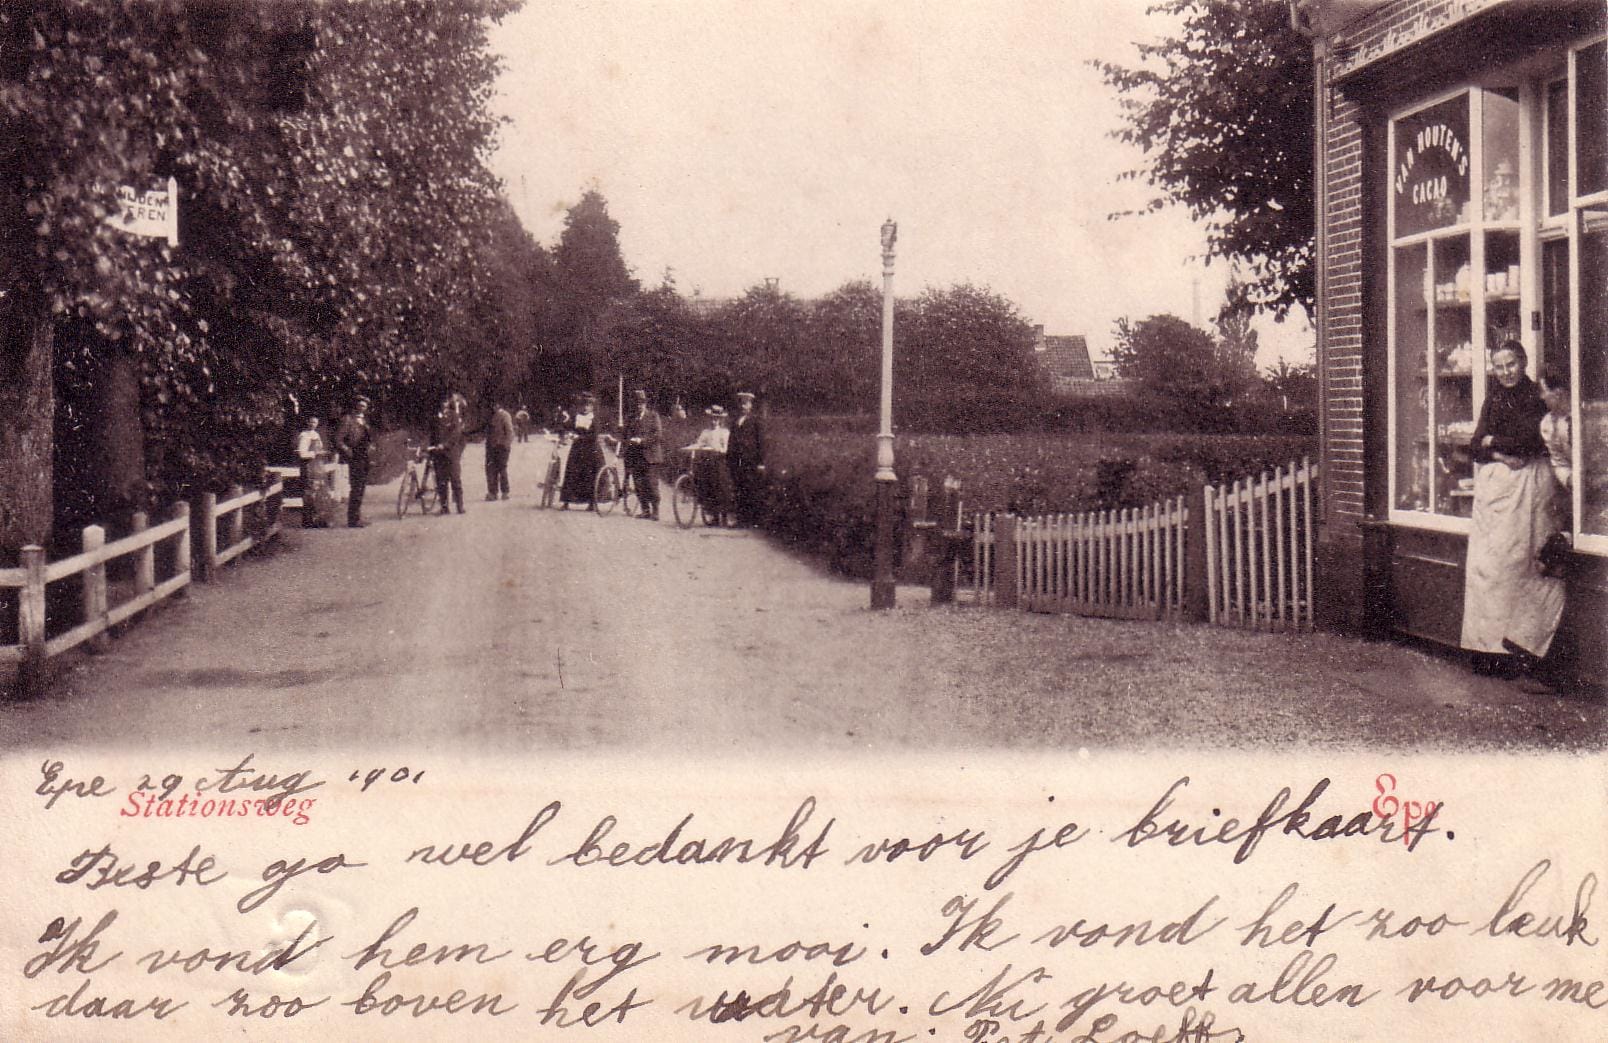 VAN HOUTEN'S
CACAO
EREN
Epe 29 Aug 1901
Stationsweg
Epe
Beste go wel bedankt voor je briefkaart.
Ik vond hem erg mooi. Ik vond het zoo leuk
daar zoo boven het water. Nu groet allen voor me
van